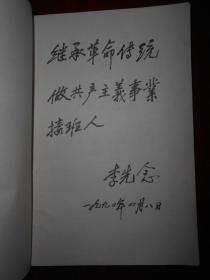 继承革命传统
做共产主義事業
接班人
李先念
一九九〇年八月八日